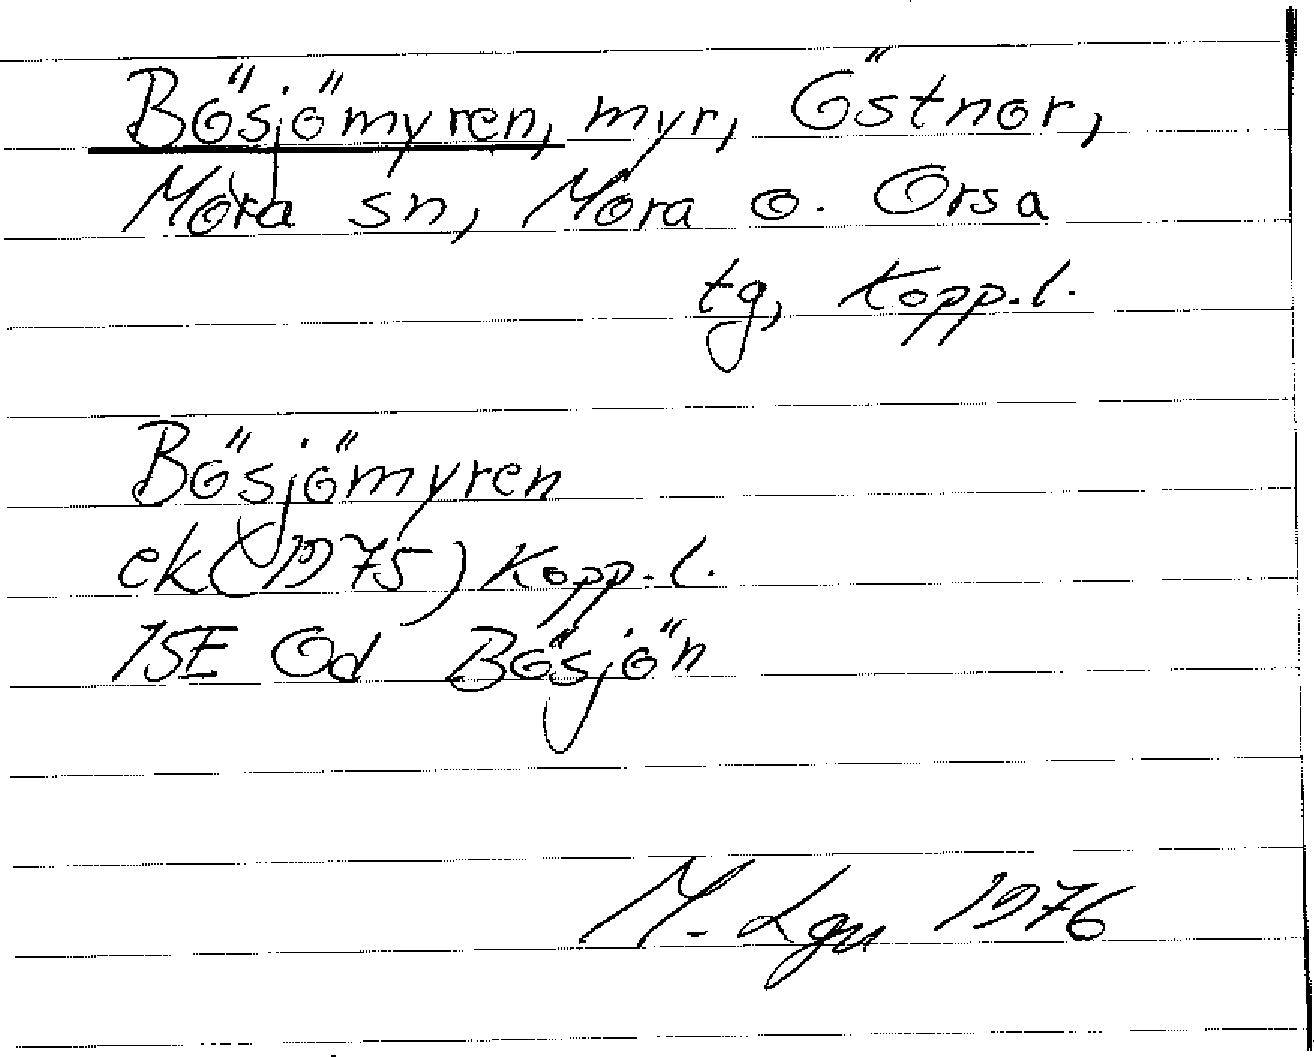 Bösjömyren, myr, Östnor,
Mora sn, Mora o. Orsa
tg, Kopp.l.
Bösjömyren
ek (1975) Kopp.l.
15E Od Bösjön
M. Lgn 1976